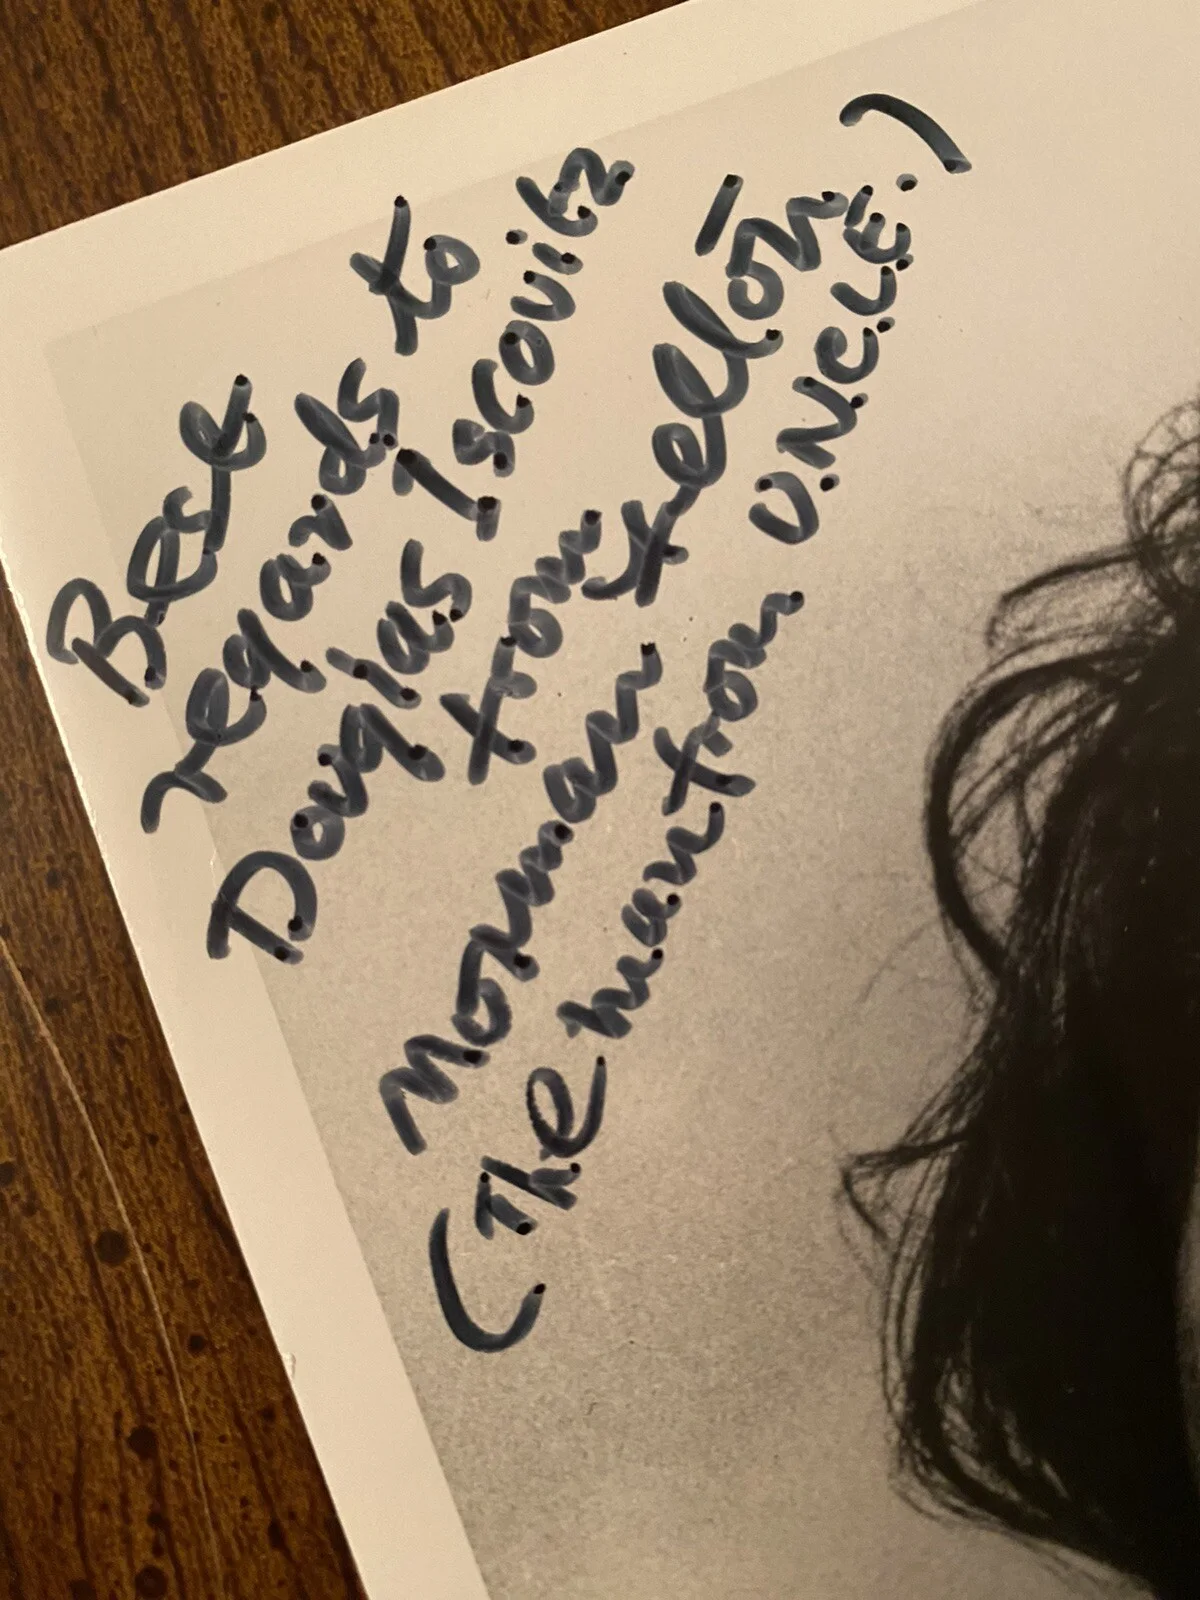 Best
regards to
Douglas Iscovitz
from
Norman Felton
(The man from U.N.C.L.E.)